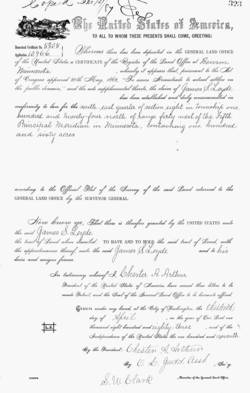 The United States of America,
TO ALL TO WHOM THESE PRESENTS SHALL COME, GREETING:
Homestead Certificate No. 5908
Application 10466
Whereas there has been deposited in the GENERAL LAND OFFICE
of the United States a CERTIFICATE of the Register of the Land Office at Benson
Minnesota, whereby it appears that, pursuant to the Act
of Congress approved 20th May, 1862, "To secure Homesteads to actual settlers on
the public domain," and the acts supplemental thereto, the claim of James S. Loyde
has been established and duly consummated, in
conformity to law for the south east quarter of section eight in township one
hundred and twenty four north of range forty west of the Fifth
Principal Meridian in Minnesota, containing one hundred
and sixty acres
according to the Official Plat of the Survey of the said Land returned to the
GENERAL LAND OFFICE by the SURVEYOR GENERAL.
Now know ye, That there is therefore granted by the UNITED STATES unto
the said James S. Loyde
the tract of Land above described. TO HAVE AND TO HOLD the said tract of Land, with
the appurtenances thereof, unto the said James S. Loyde and to his
heirs and assigns forever.
In testimony whereof I, Chester A. Arthur
President of the United States of America, have caused these letters to be
made Patent and the Seal of the General Land Office to be hereunto affixed.
Given under my hand, at the City of Washington, the
day of April, in the year of Our Lord one
thousand eight hundred and eighty three, and of the
Independence of the United States the one hundred and seventh
By the President: Chester A. Arthur
By
S. W. Clark, Recorder of the General Land Office.